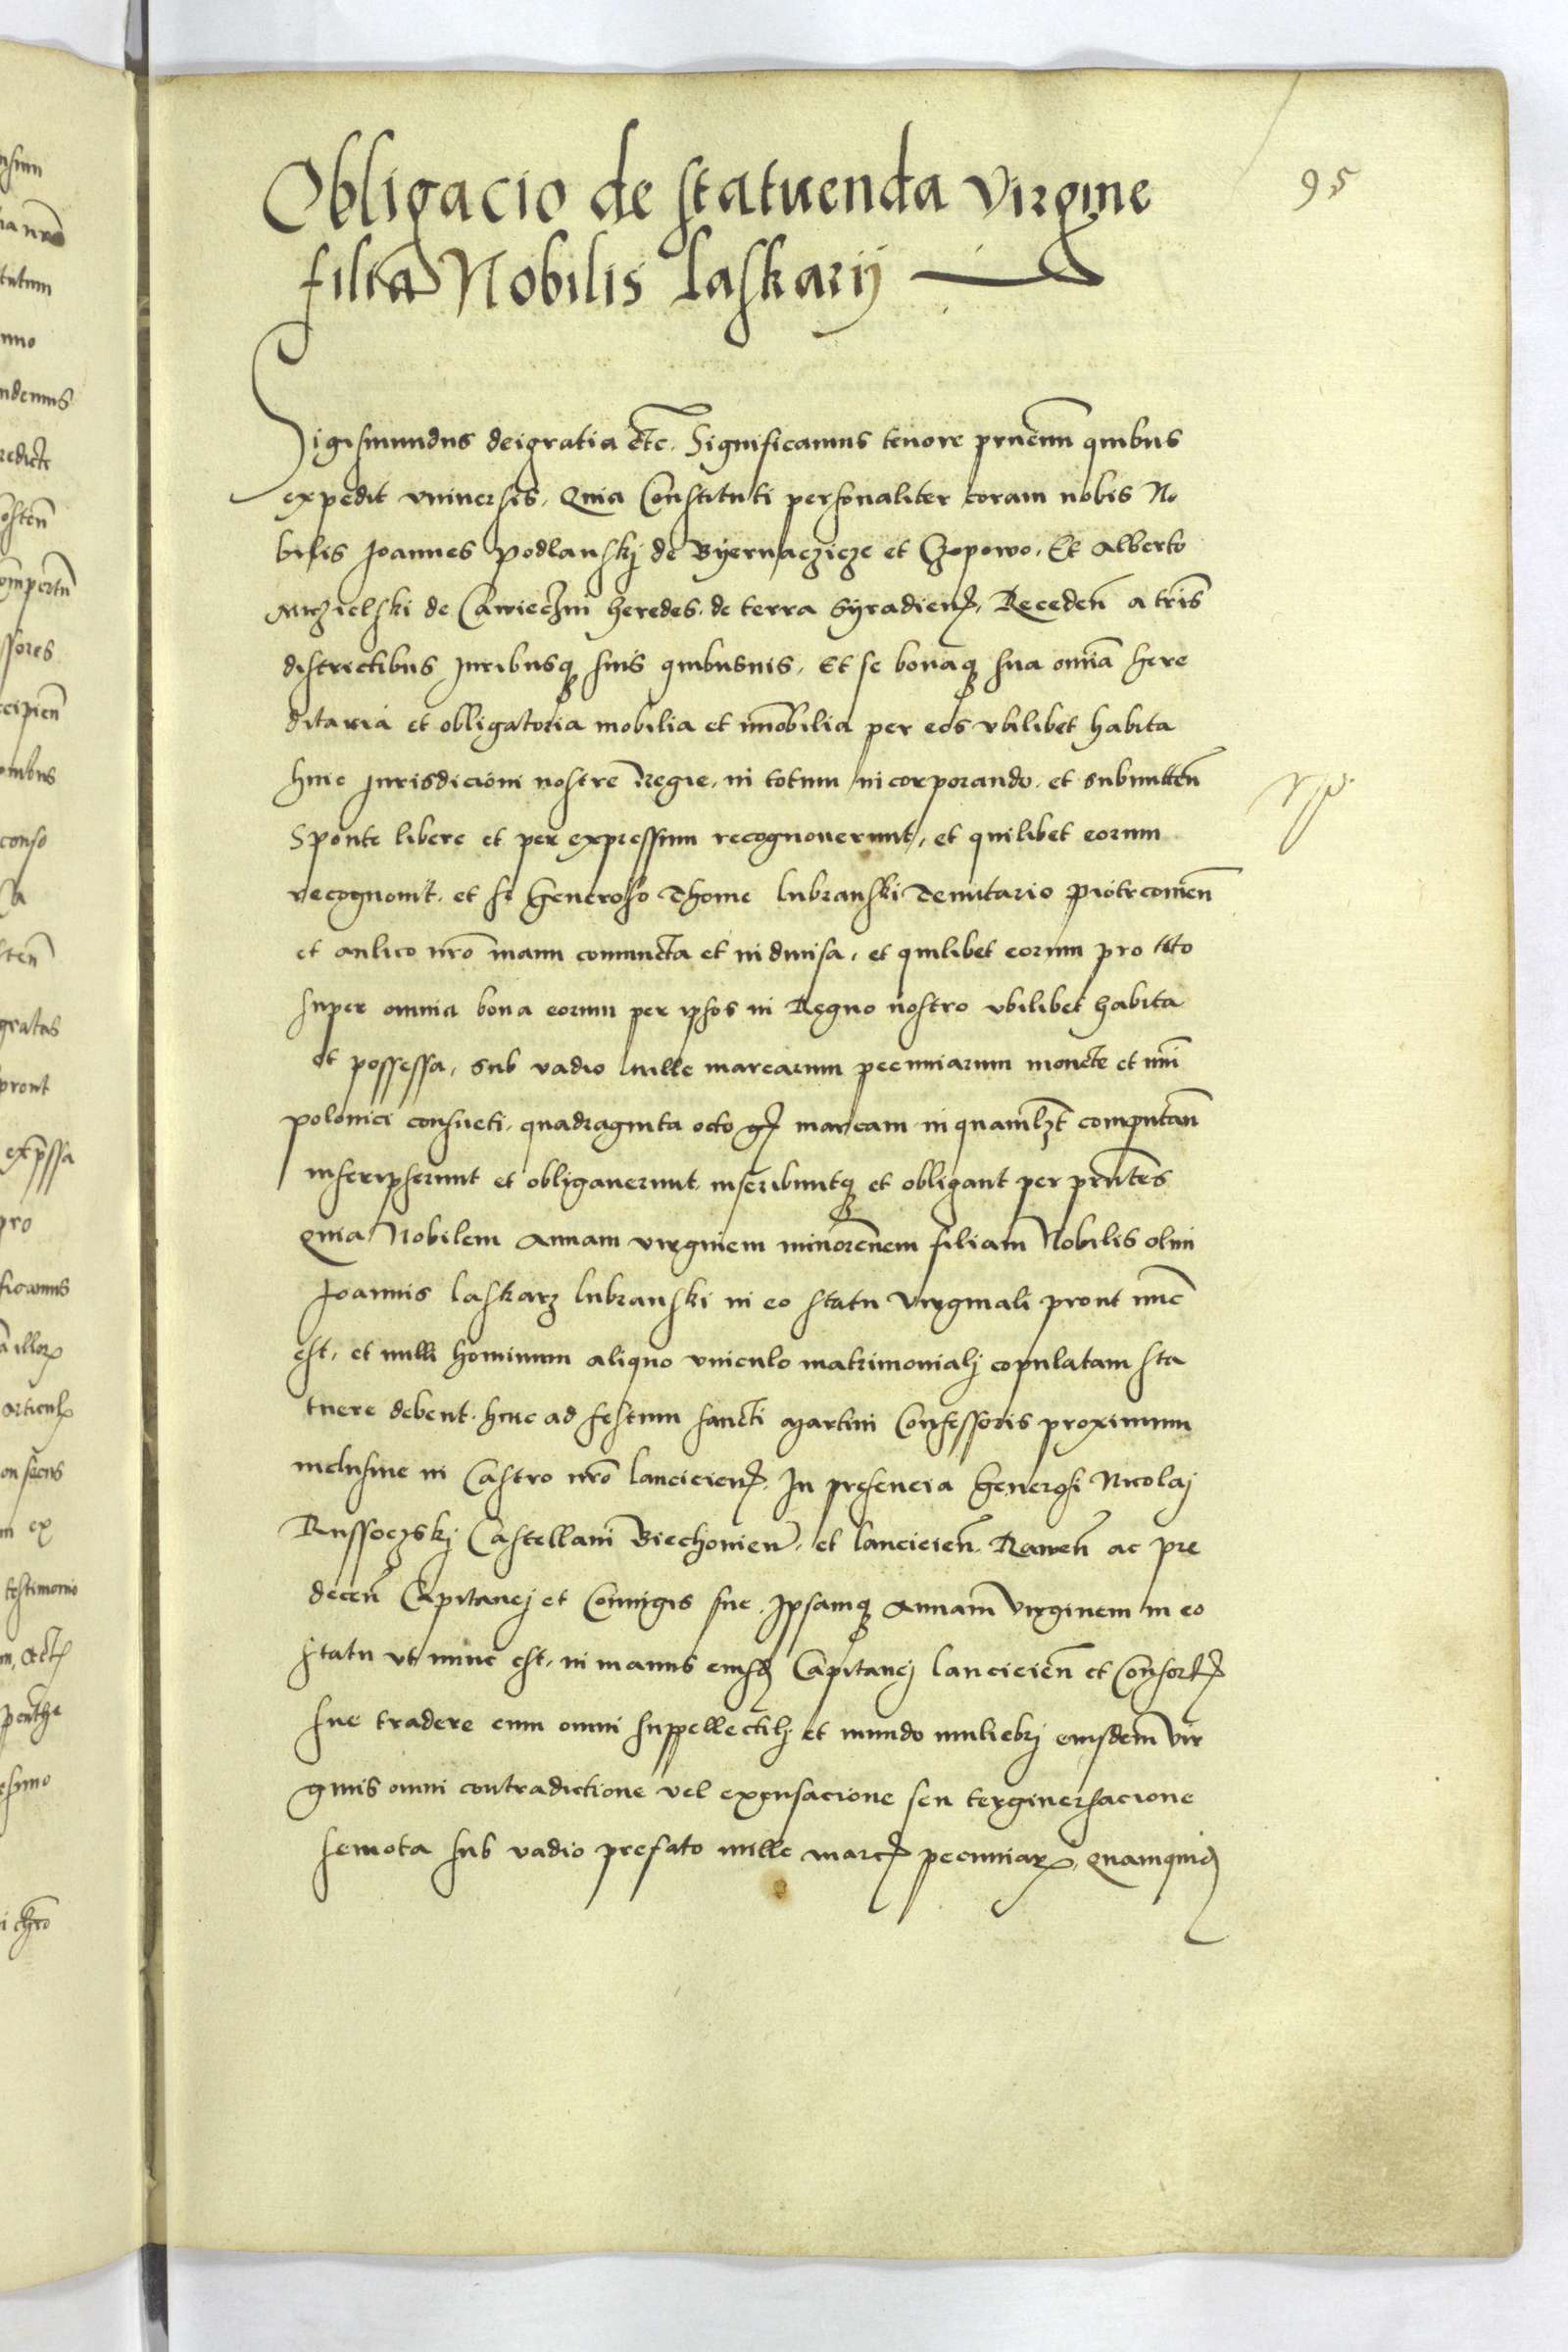 95
Obligacio de statuenda virgine
filia Nobilis Laskarij
Sigismundus dei gratia etc. Significamus tenore prncium quibus
expedit vniuersis, Quia Constituti personaliter coram nobis No
bilis Joannes podlanskj de Byernaczicze et Czepowo, Et Alberto
de heredes de terra Syradien, Receden a tris
districtibus Juribusq suis quibusuis, Et se bonaq sua omia here
ditaria et obligatoria mobilia et imobilia per eos vbilibet habita
huic Jurisdicioni nostre Regie, in totum incorporando et submitten
Sponte libere et per expressum recognouerunt, et quilibet eorum
recognouit. et se Generoso Thome lubranski Tenutario piotrcouien
et aulico nro manu coniuncta et indiuisa, et quilibet eorum pro tto
super omnia bona eorum per ipsos in Regno nostro vbilibet habita
et possessa, sub vadio mille marcarum pecuniarum monete et nui
polonici consueti, quadraginta octo gr marcam in quamlzt computan
inscripserunt et obligauerunt, inscribuntq et obligant per prntes
Quia Nobilem Annam virginem minorennem filiam Nobilis olim
Joannis Laskarz lubranski in eo statu virginali prout nuc
est, et nulli hominum aliquo vinculo matrimonialj copulatam sta
tuere debent. hinc ad festum sancti Martini Confessoris proximum
inclusiue in Castro nro lancicien. In presencia Generosi Nicolaj
Russoczskj Castellani Biechouien. et lancicien. Rauen ac pre
decen Capitanej et Coniugis sue, Ipsamq Annam virginem in eo
statu vt nunc est, in manus eiusd Capitanej lancicien et Consort
sue tradere cum omni suppellectilj et mundo muliebrj eiusdem vir
ginis omni contradictione vel excusacione seu tergiuersacione
semota sub vadio prefato mille marc pecuniar, Quamquid